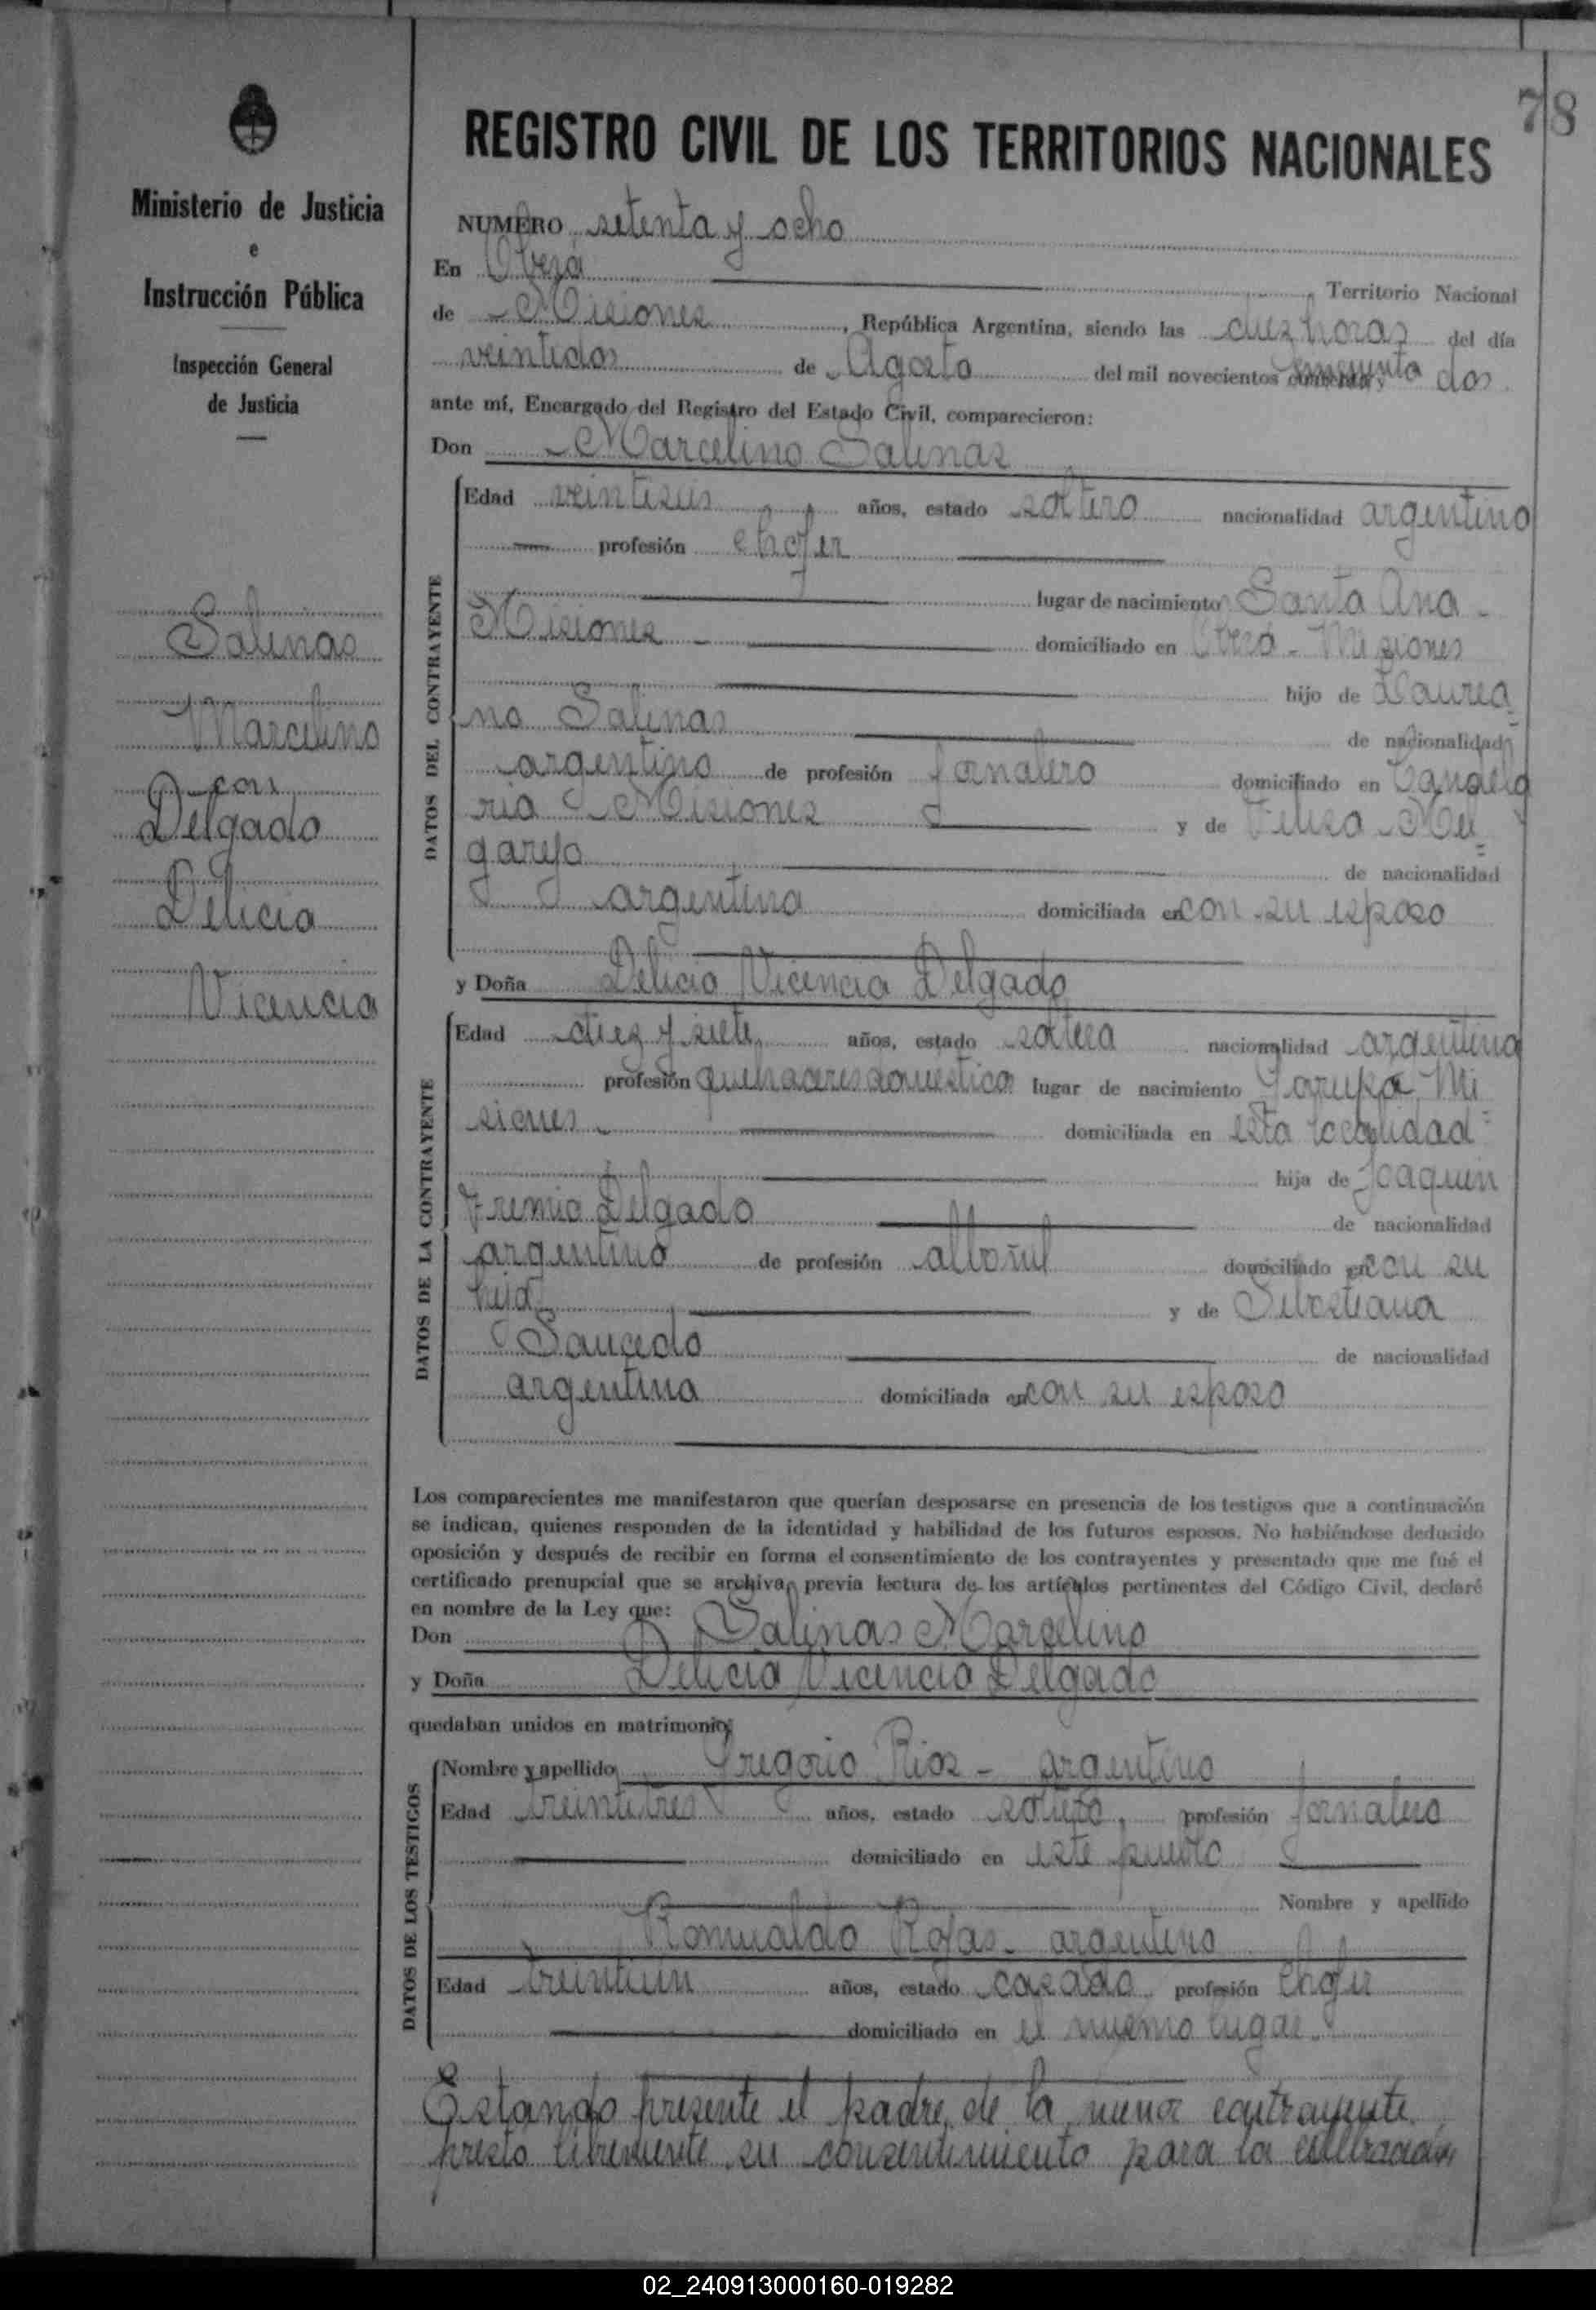 78
Ministerio de Justicia
e
Instrucción Pública
Inspección General
de Justicia
Salinas
Marcelino
con
Delgado
Delicia
Vicencia
REGISTRO CIVIL DE LOS TERRITORIOS NACIONALES
NUMERO setenta y ocho
En Oberá Territorio Nacional
de Misiones, República Argentina, siendo las diez horas del día
veintidos de Agosto del mil novecientos cincuenta dos
ante mí, Encargado del Registro del Estado Civil, comparecieron:
Don Marcelino Salinas
DATOS DEL CONTRAYENTE
Edad veintiseis años, estado soltero nacionalidad argentino
profesión chofer
lugar de nacimiento Santa Ana -
Misiones - domiciliado en Oberá - Misiones
hijo de Laurea
no Salinas de nacionalidad
argentino de profesión Jornalero domiciliado en Candela
ria - Misiones y de Felisa Me
garejo de nacionalidad
argentina domiciliada en con su esposo
y Doña Delicia Vicencia Delgado
DATOS DE LA CONTRAYENTE
Edad diez y siete años, estado soltera nacionalidad argentina
profesión quehaceres domestico lugar de nacimiento Garupa Mi
siones domiciliada en esta localidad
hija de Joaquin
Delgado de nacionalidad
argentino de profesión albañil domiciliado en con su
hija y de Sebastiana
Saucedo de nacionalidad
argentina domiciliada en con su esposo
Los comparecientes me manifestaron que querían desposarse en presencia de los testigos que a continuación
se indican, quienes responden de la identidad y habilidad de los futuros esposos. No habiéndose deducido
oposición y después de recibir en forma el consentimiento de los contrayentes y presentado que me fué el
certificado prenupcial que se archiva, previa lectura de los artículos pertinentes del Código Civil, declaré
en nombre de la Ley que:
Don Salinas Marcelino
y Doña Delicia Vicencia Delgado
quedaban unidos en matrimonio
DATOS DE LOS TESTIGOS
Nombre y apellido Gregorio Rios - argentino
Edad treintitres años, estado soltero, profesión jornalero
domiciliado en este pueblo
Nombre y apellido
Romualdo Rojas - argentino
Edad treintiun años, estado casado profesión Chofer
domiciliado en el mismo lugar.
Estando presente el padre de la menor contrayente
presto libremente su consentimiento para la celebración
02_240913000160-019282